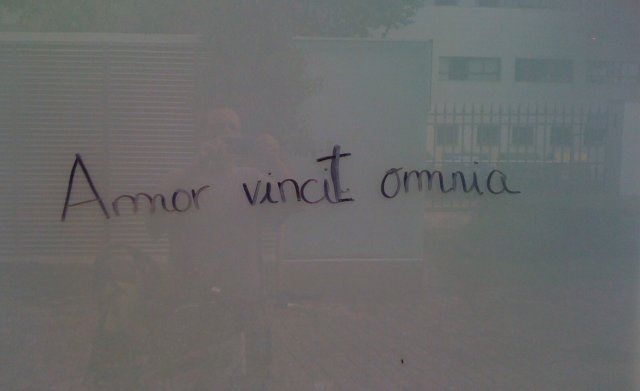 Amor vincit omnia